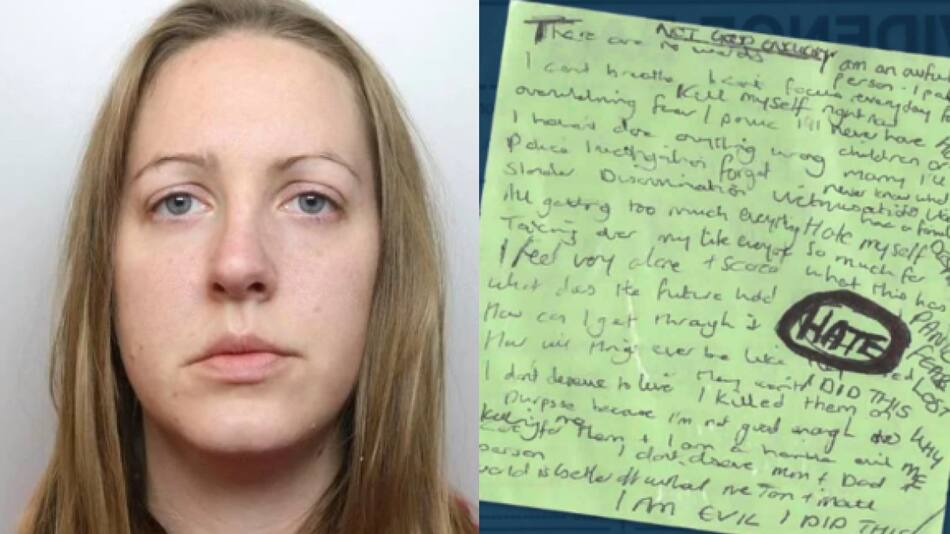 NOT GOOD ENOUGH
There are no words am an awful
person - I pay
I can't breathe I can't focus everyday
Kill myself right now
overwhelming fear/panic I'll never have
I haven't done anything wrong children or
marry I'll
Police investigation forget never know what
Slander Discrimination Victimisation
have a family
All getting too much everything Hate myself
Taking over my life so much for
I feel very alone + scared what this has
What does the future hold PANIC
How can I get through it HATE FEAR
How will things ever be like LOST
they won't I DID THIS WHY
I don't deserve to live I killed them on ME
purpose because I'm not good enough to
care for them + I am a horrible evil
person I don't deserve mum + Dad
world is better off without me
I AM EVIL I DID THIS